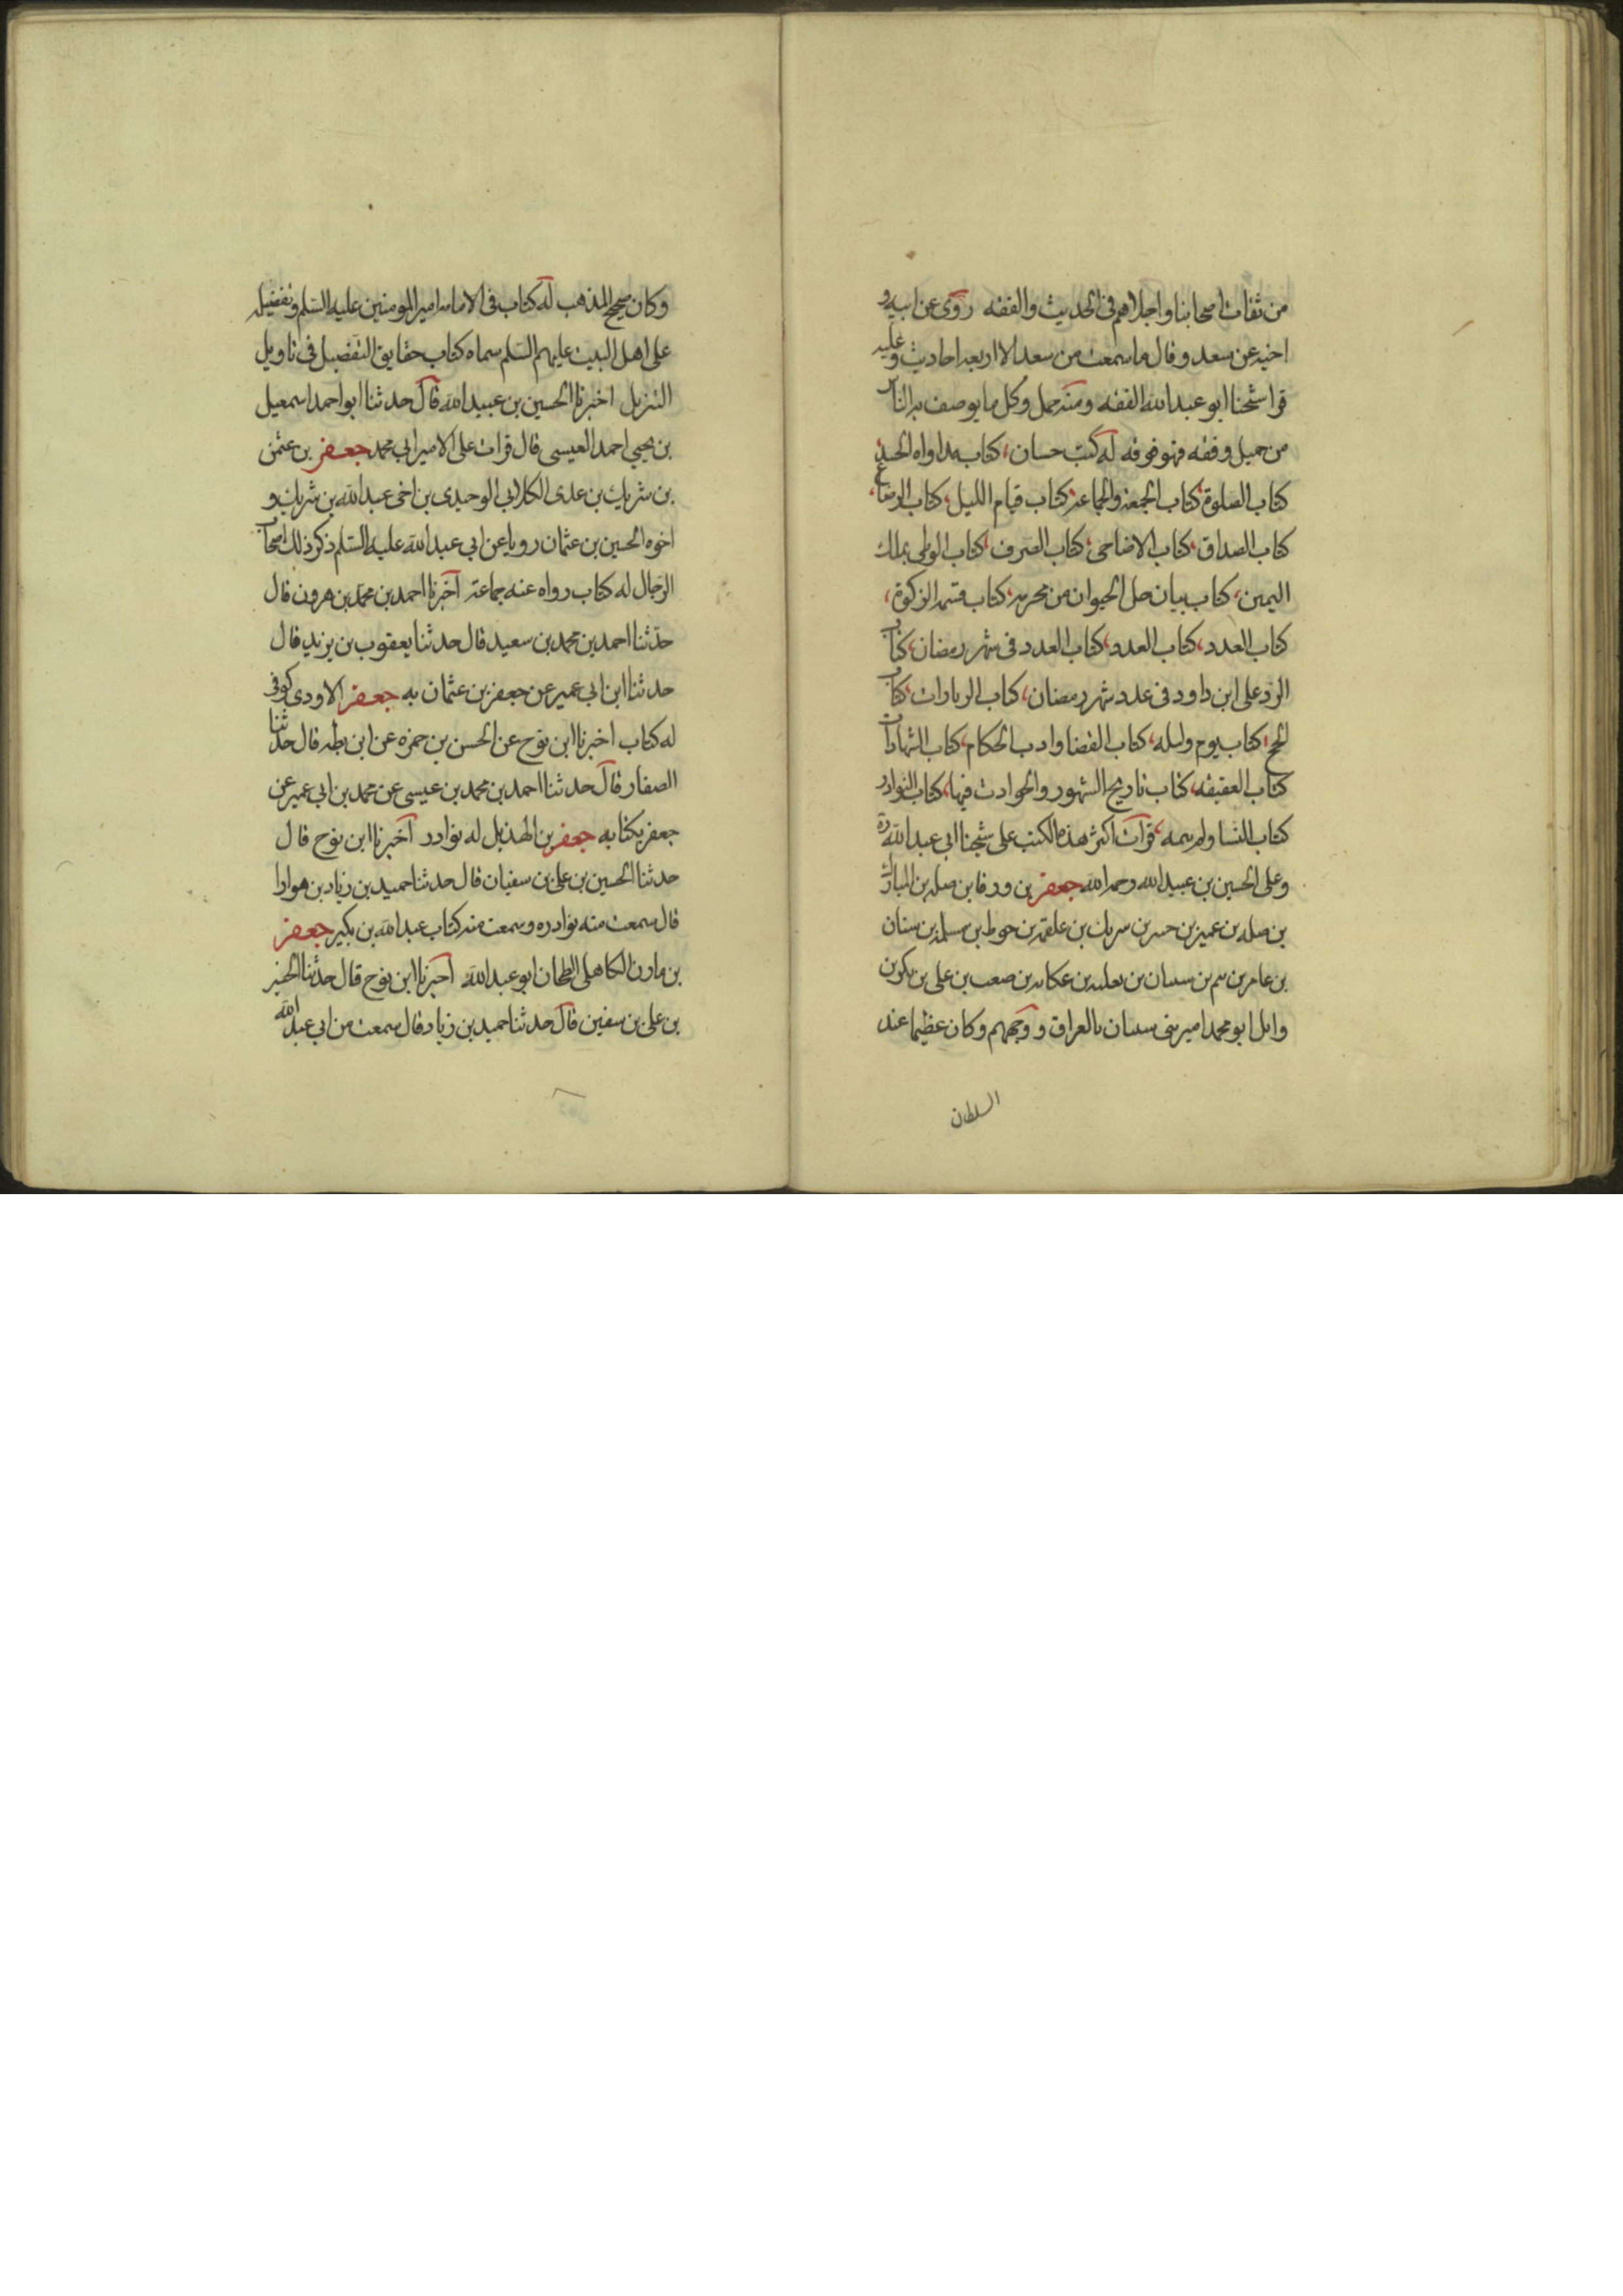 من ثقات اصحابنا واجلاهم فى الحديث والفقه روى عن ابيه و
اخيه عن سعد وقال ما سمعت من سعد الا اربعه احاديث وعليه
قرا شيخنا ابو عبد الله الفقه ومنه حمل وكل ما يوصف به الناس
من جميل وفقه فهو فوقه له كتب حسان، كتاب مداواه الجسد
كتاب الصلوة كتاب الجمعة والجماعة كتاب قيام الليل، كتاب الرضاع،
كتاب الصداق، كتاب الاضاحى، كتاب الصرف، كتاب الوطى بملك
اليمين، كتاب بيان حل الحيوان من محرمه، كتاب قسمه الزكوة،
كتاب العدد، كتاب العدد، كتاب العدد فى شهر رمضان، كتاب
الرد على ابن داود فى عدد شهر رمضان، كتاب الزيارات، كتاب
الحج، كتاب يوم وليله، كتاب القضا وادب الحكام، كتاب الشهادات
كتاب العقيقه، كتاب تاريخ الشهور والحوادث فيها، كتاب النوادر
كتاب النسا ولم يتمه، قرات اكثر هذه الكتب على شيخنا ابى عبد الله ره
وعلى الحسين بن عبيد الله رحمه الله جعفر بن ورقا بن صله بن المبارك
بن صله بن عمير بن بن شريك بن علقمه بن حوط بن مسلمه بن سنان
بن عامر بن تيم بن شيبان بن ثعلبه بن عكابه بن صعب بن على بن بكر بن
وايل ابو محمد امير بنى شيبان بالعراق و وجههم وكان عظيما عند
السلطان
وكان صحيح المذهب له كتاب فى الامامه امير المومنين عليه السلم وتفضيله
على اهل البيت عليهم السلم سماه كتاب حقايق التفضيل فى تاويل
التنزيل اخبرنا الحسين بن عبيد الله قال حدثنا ابو احمد اسمعيل
بن يحيى احمد العبسى قال قرات على الامير ابى محمد جعفر بن عثمن
بن شريك بن عدى الكلابى الوحيدى بن اخى عبد الله بن شريك و
اخوه الحسين بن عثمان رويا عن ابى عبد الله عليه السلم ذكر ذلك اصحاب
الرجال له كتاب رواه عنه جماعة اخبرنا احمد بن محمد بن هرون قال
حدثنا احمد بن محمد بن سعيد قال حدثنا يعقوب بن يزيد قال
حدثنا ابن ابى عمير عن جعفر بن عثمان به جعفر الاودى كوفى
له كتاب اخبرنا ابن نوح عن الحسن بن حمزه عن ابن بطه قال حدثنا
الصفار قال حدثنا احمد بن محمد بن عيسى عن محمد بن ابى عمير عن
جعفر بكتابه جعفر بن الهذيل له نوادر اخبرنا ابن نوح قال
حدثنا الحسين بن على بن سفيان قال حدثنا حميد بن زياد بن هوارا
قال سمعت منه نوادره وسمعت منه كتاب عبد الله بن بكير جعفر
بن مازن الكاهلى الطحان ابو عبد الله اخبرنا ابن نوح قال حدثنا
بن على بن سفين قال حدثنا حميد بن زياد قال سمعت من ابى عبد الله